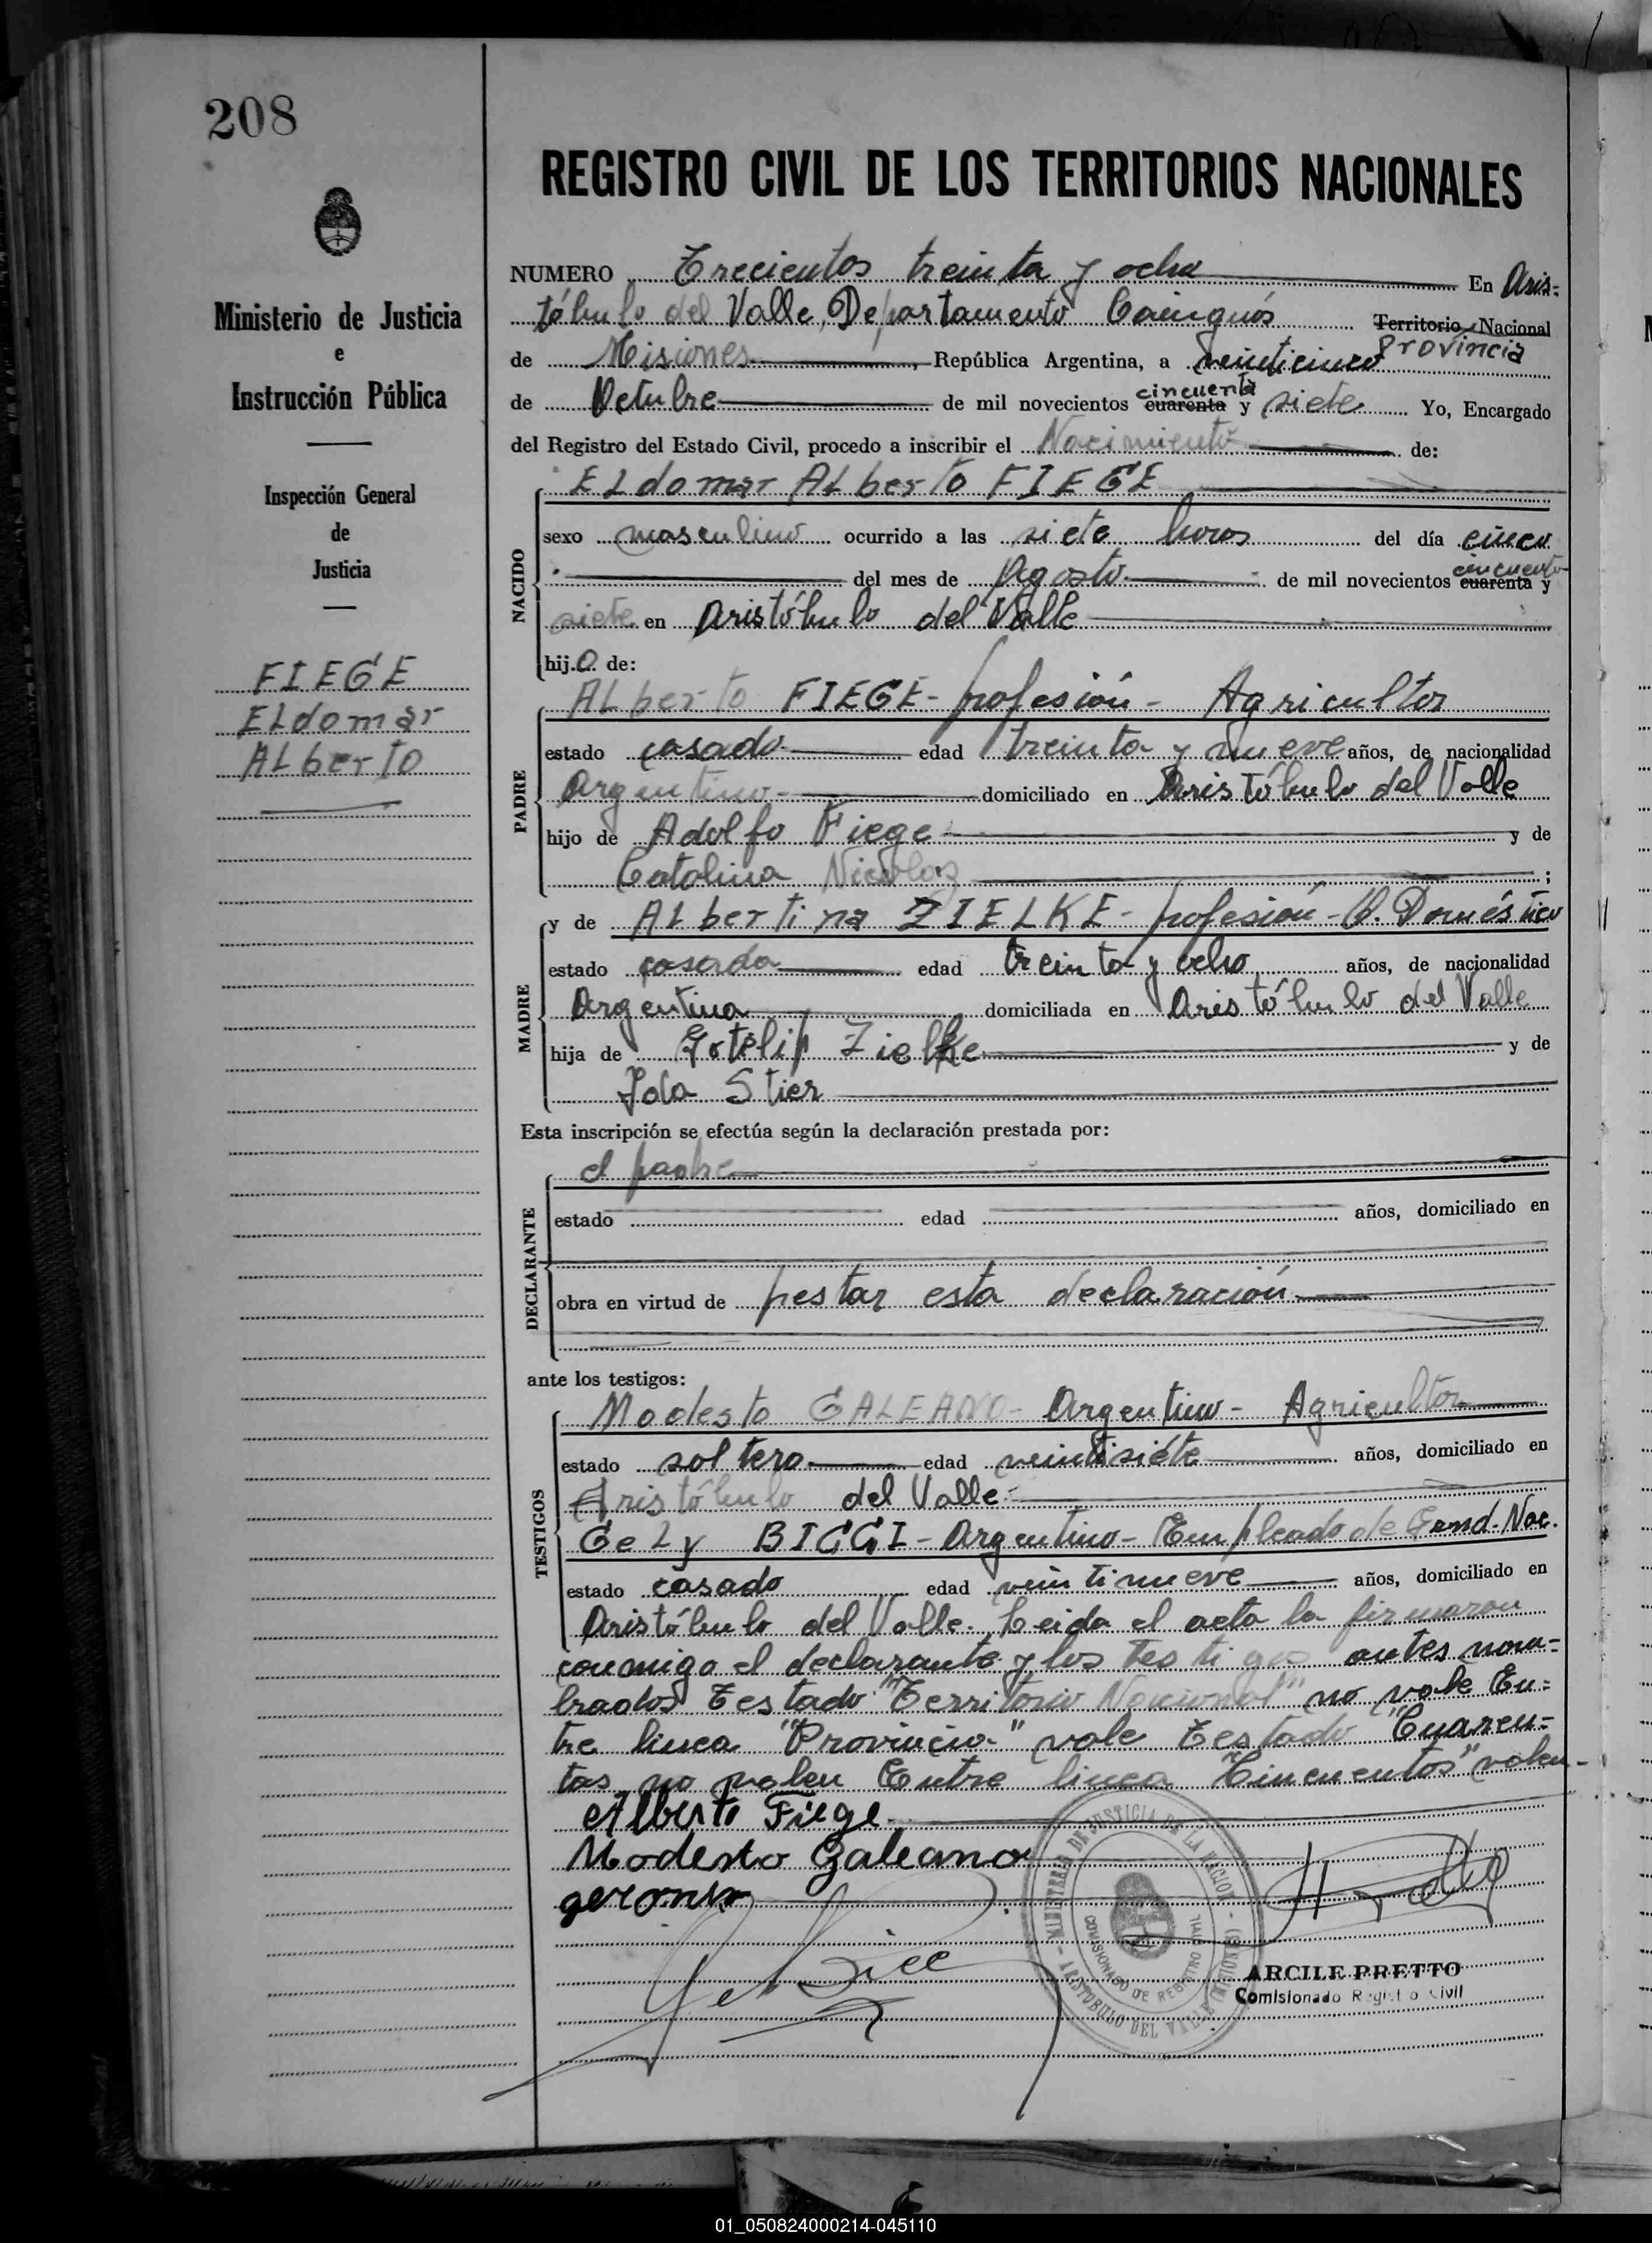 208
REGISTRO CIVIL DE LOS TERRITORIOS NACIONALES
Ministerio de Justicia
e
Instrucción Pública
Inspección General
de
Justicia
FIEGE
Eldomar
Alberto
NUMERO Trecientos treinta y ocho En Aris-
tóbulo del Valle, Departamento Cainguás Territorio Nacional
Provincia
de Misiones, República Argentina, a veinticinco
cincuenta
de Octubre de mil novecientos cuarenta y siete Yo, Encargado
del Registro del Estado Civil, procedo a inscribir el Nacimiento de:
NACIDO
Eldomar Alberto FIEGE
sexo masculino ocurrido a las siete horos del día cinco
cincuenta
del mes de Agosto de mil novecientos cuarenta y
siete en Aristóbulo del Valle
hijo de:
PADRE
Alberto FIEGE - profesión - Agricultor
estado casado edad treinta y nueve años, de nacionalidad
Argentino domiciliado en Aristóbulo del Valle
hijo de Adolfo Fiege y de
Catalina Nicolaz ;
MADRE
y de Albertina ZIELKE - profesión - Q. Doméstico
estado casada edad treinta y ocho años, de nacionalidad
Argentina domiciliada en Aristóbulo del Valle
hija de Gotslip Zielke y de
Ida Stier
Esta inscripción se efectúa según la declaración prestada por:
DECLARANTE
el padre
estado edad años, domiciliado en
obra en virtud de prestar esta declaración
ante los testigos:
TESTIGOS
Modesto GALEANO - Argentino - Agricultor
estado soltero edad veintisiéte años, domiciliado en
Aristóbulo del Valle
Gely BIGGI - Argentino - Empleado de Gend. Nac.
estado casado edad veintinueve años, domiciliado en
Aristóbulo del Valle. Leida el acta la firmaron
conmigo el declarante y los testigos antes nom-
brados Testado "Territorio Nacional" no vale En-
tre linea "Provincia" vale Testado "Cuaren-
tas no valen Entre linea "Cincuentas" valen-
Alberto Fiege
Modesto Galeano
MINISTERIO DE JUSTICIA DE LA NACION
COMISIONADO DE REGISTRO CIVIL
ARISTOBULO DEL VALLE (MISIONES)
ARCILE PRETTO
Comisionado Registro Civil
01_050824000214-045110